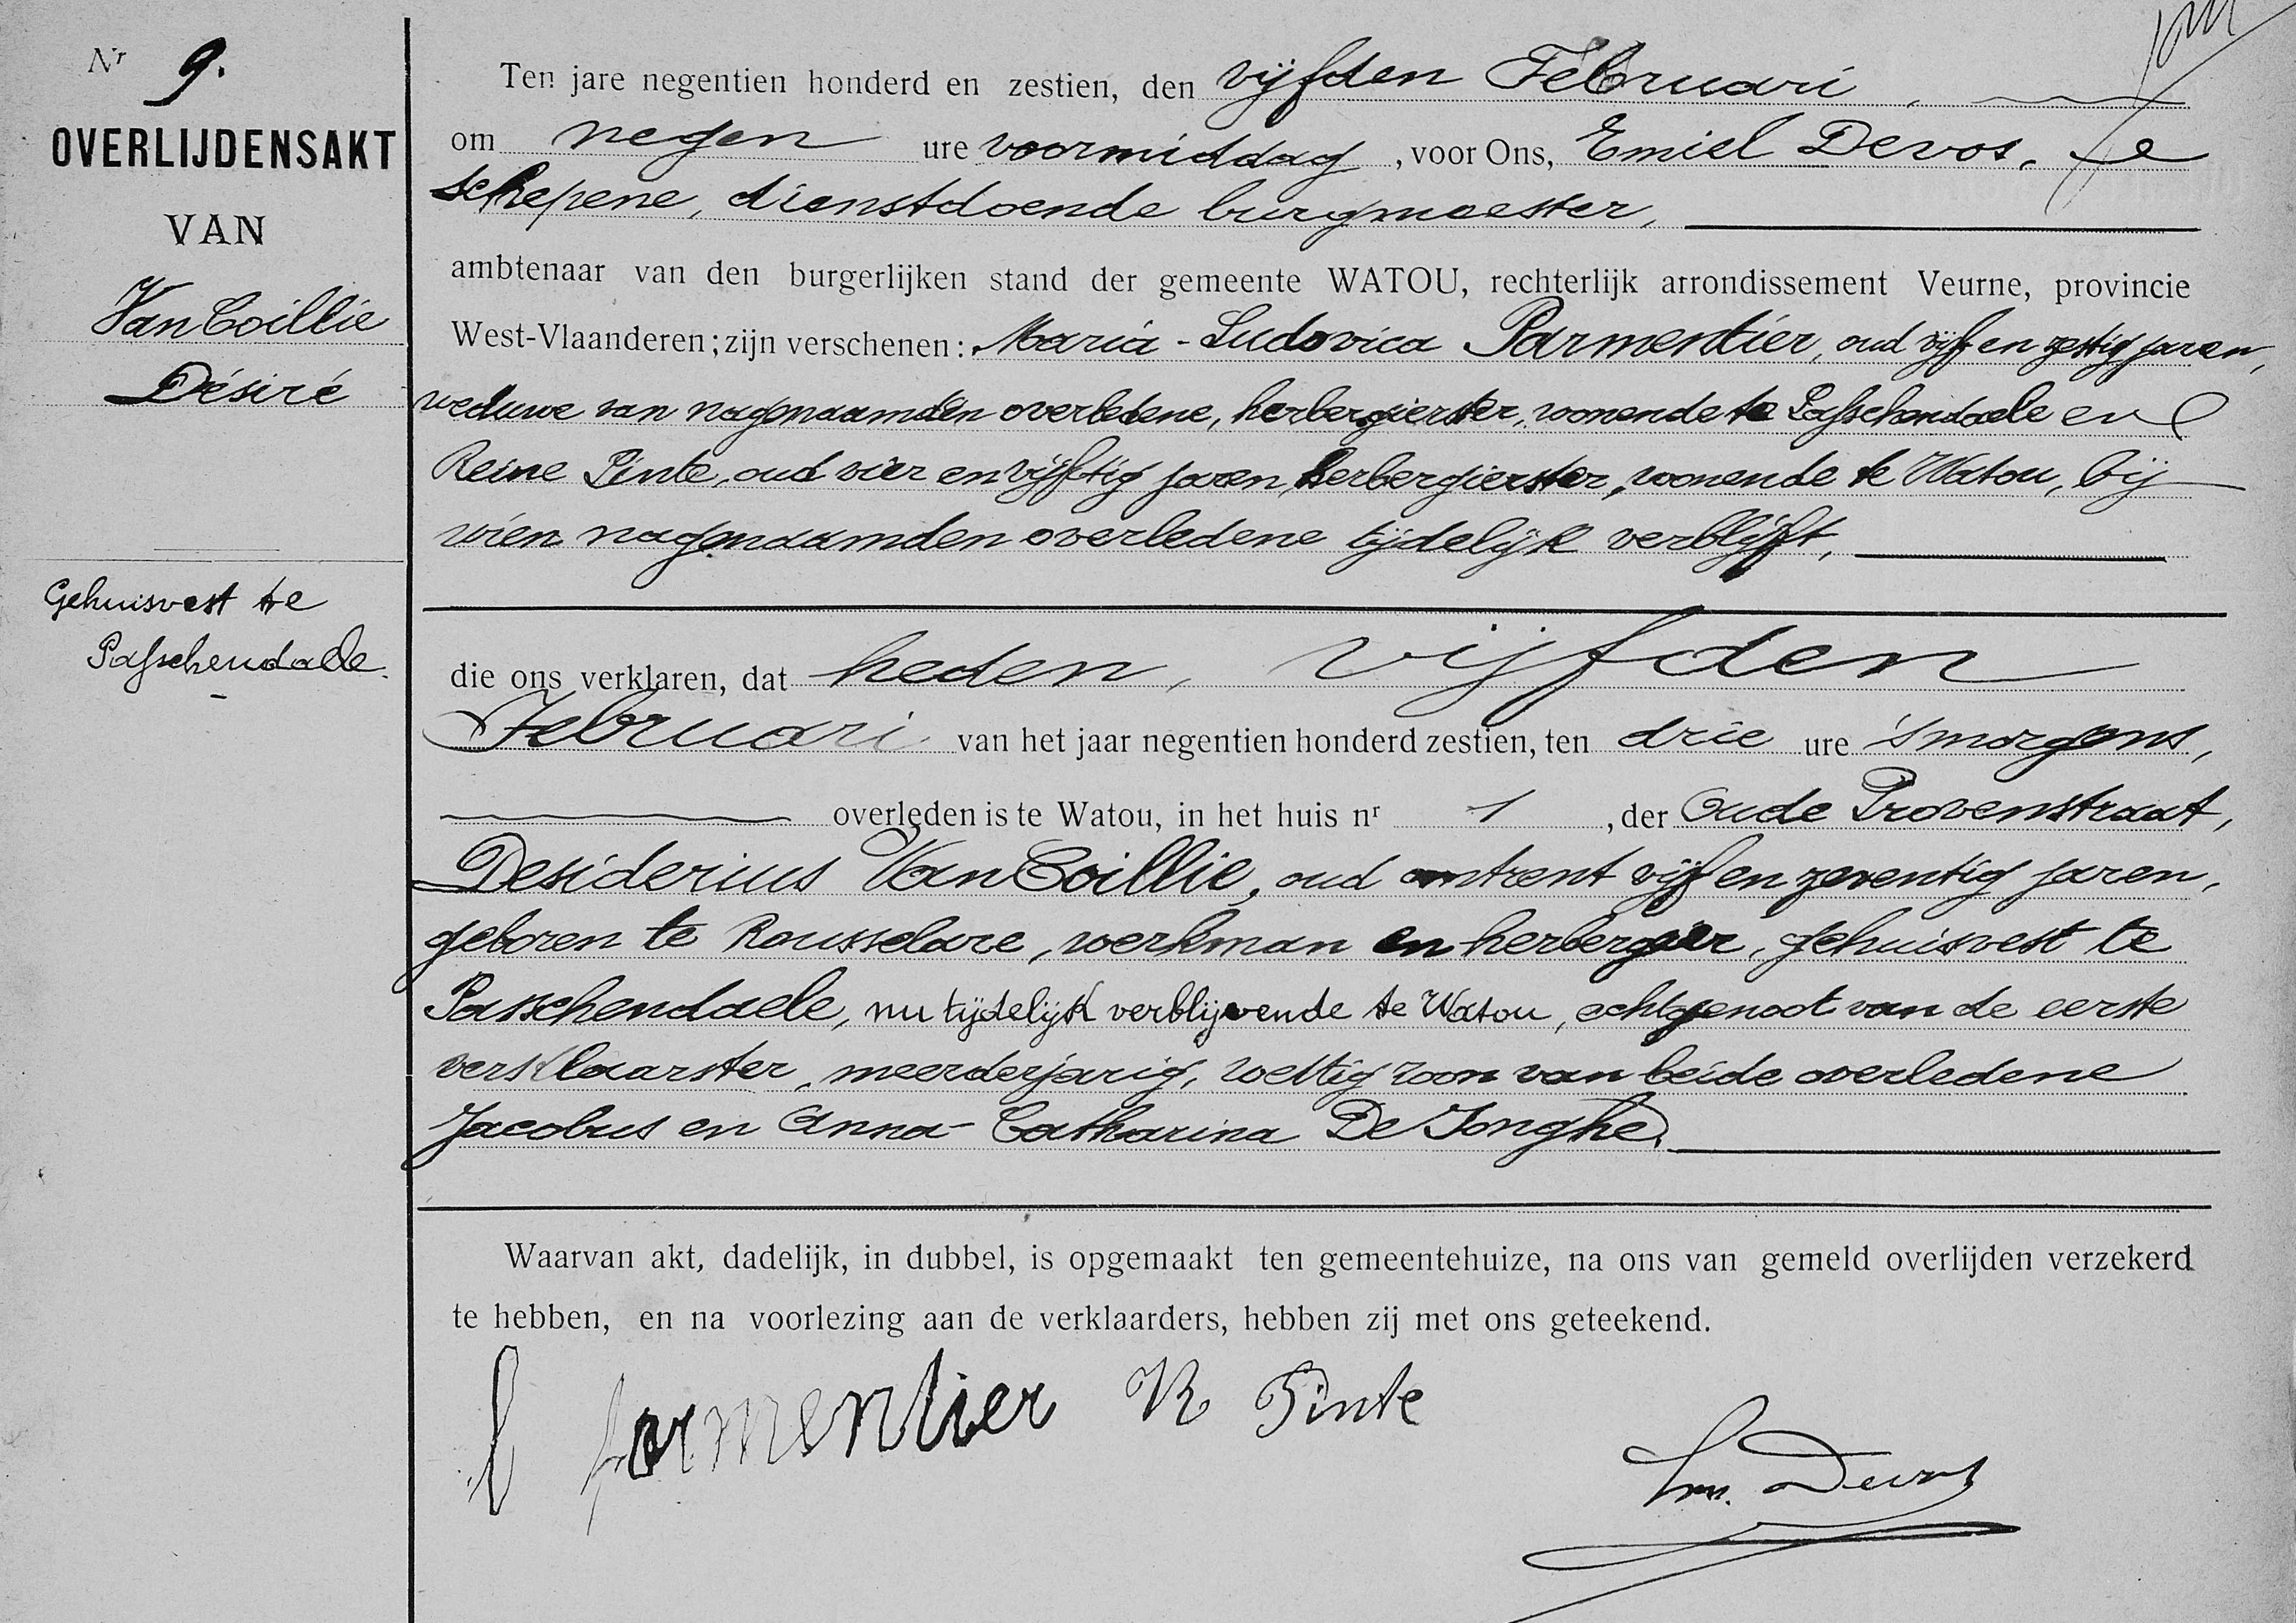 Nr 9.
OVERLIJDENSAKT
VAN
Van Coillie
Désiré
Gehuisvest te
Passchendaele.
Ten jare negentien honderd en zestien, den vijfden Februari,
om negen ure voormiddag, voor Ons, Emiel Devos,
schepene, dienstdoende burgmeester,
ambtenaar van den burgerlijken stand der gemeente WATOU, rechterlijk arrondissement Veurne, provincie
West-Vlaanderen; zijn verschenen: Maria-Ludovica Parmentier, oud vijf en zestig jaren,
weduwe van nagenaamden overledene, herbergierster, woonende te Passchendaele en
Reine Pinte, oud vier en vijftig jaren, herbergierster, woonende te Watou, bij
wien nagenaamden overledene tijdelijk verblijft,
die ons verklaren, dat heden, vijfden
Februari van het jaar negentien honderd zestien, ten drie ure 's morgens,
overleden is te Watou, in het huis nr 1, der Oude Provenstraat,
Desiderius Van Coillie, oud omtrent vijf en zeventig jaren,
geboren te Rousselare, werkman en herbergier, gehuisvest te
Passchendaele, nu tijdelijk verblijvende te Watou, echtgenoot van de eerste
verklaarster, meerderjarig, wettig zoon van beide overledene
Jacobus en Anna-Catharina De Jonghe.
Waarvan akt, dadelijk, in dubbel, is opgemaakt ten gemeentehuize, na ons van gemeld overlijden verzekerd
te hebben, en na voorlezing aan de verklaarders, hebben zij met ons geteekend.
parmentier R Pinte
Em. Devos